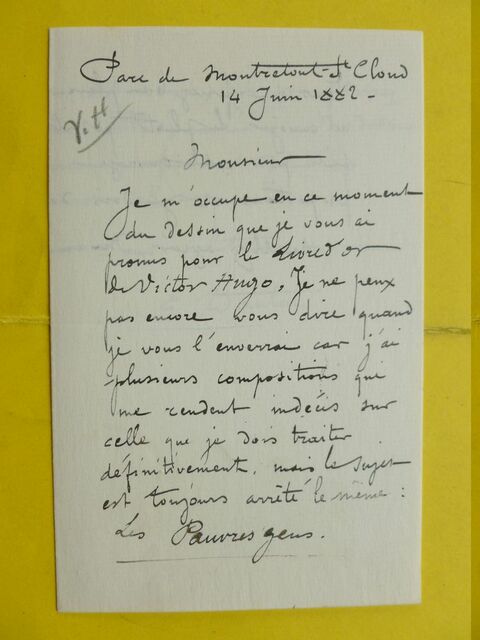 Parc de Montretout-St Cloud
14 Juin 1882 -
V. H
Monsieur
Je m'occupe en ce moment
du dessin que je vous ai
promis pour le Livre d'or
de Victor Hugo. Je ne peux
pas encore vous dire quand
je vous l'enverrai car j'ai
plusieurs compositions qui
me rendent indécis sur
celle que je dois traiter
définitivement. mais le sujet
est toujours arrêté le même :
Les Pauvres gens.